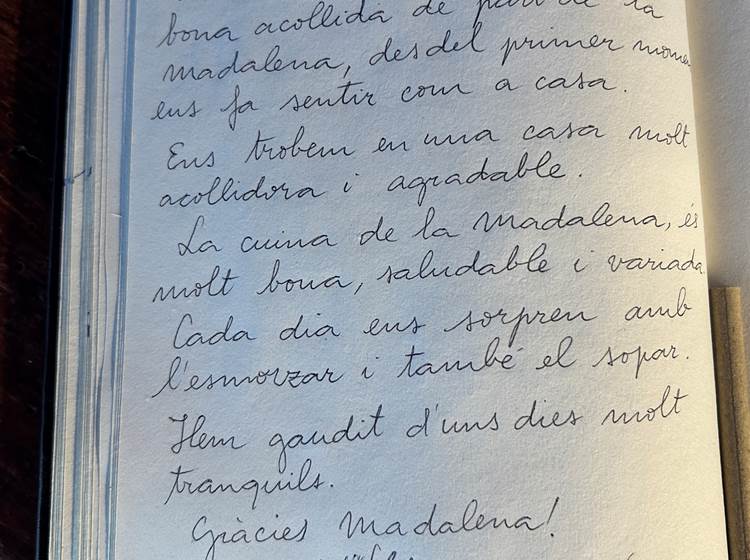 bona acollida de part de la
madalena, des del primer mome
ens fa sentir com a casa.
Ens trobem en una casa molt
acollidora i agradable.
La cuina de la madalena, és
molt bona, saludable i variada
Cada dia ens sorpren amb
l'esmorzar i també el sopar.
Hem gaudit d'uns dies molt
tranquils.
Gràcies madalena!